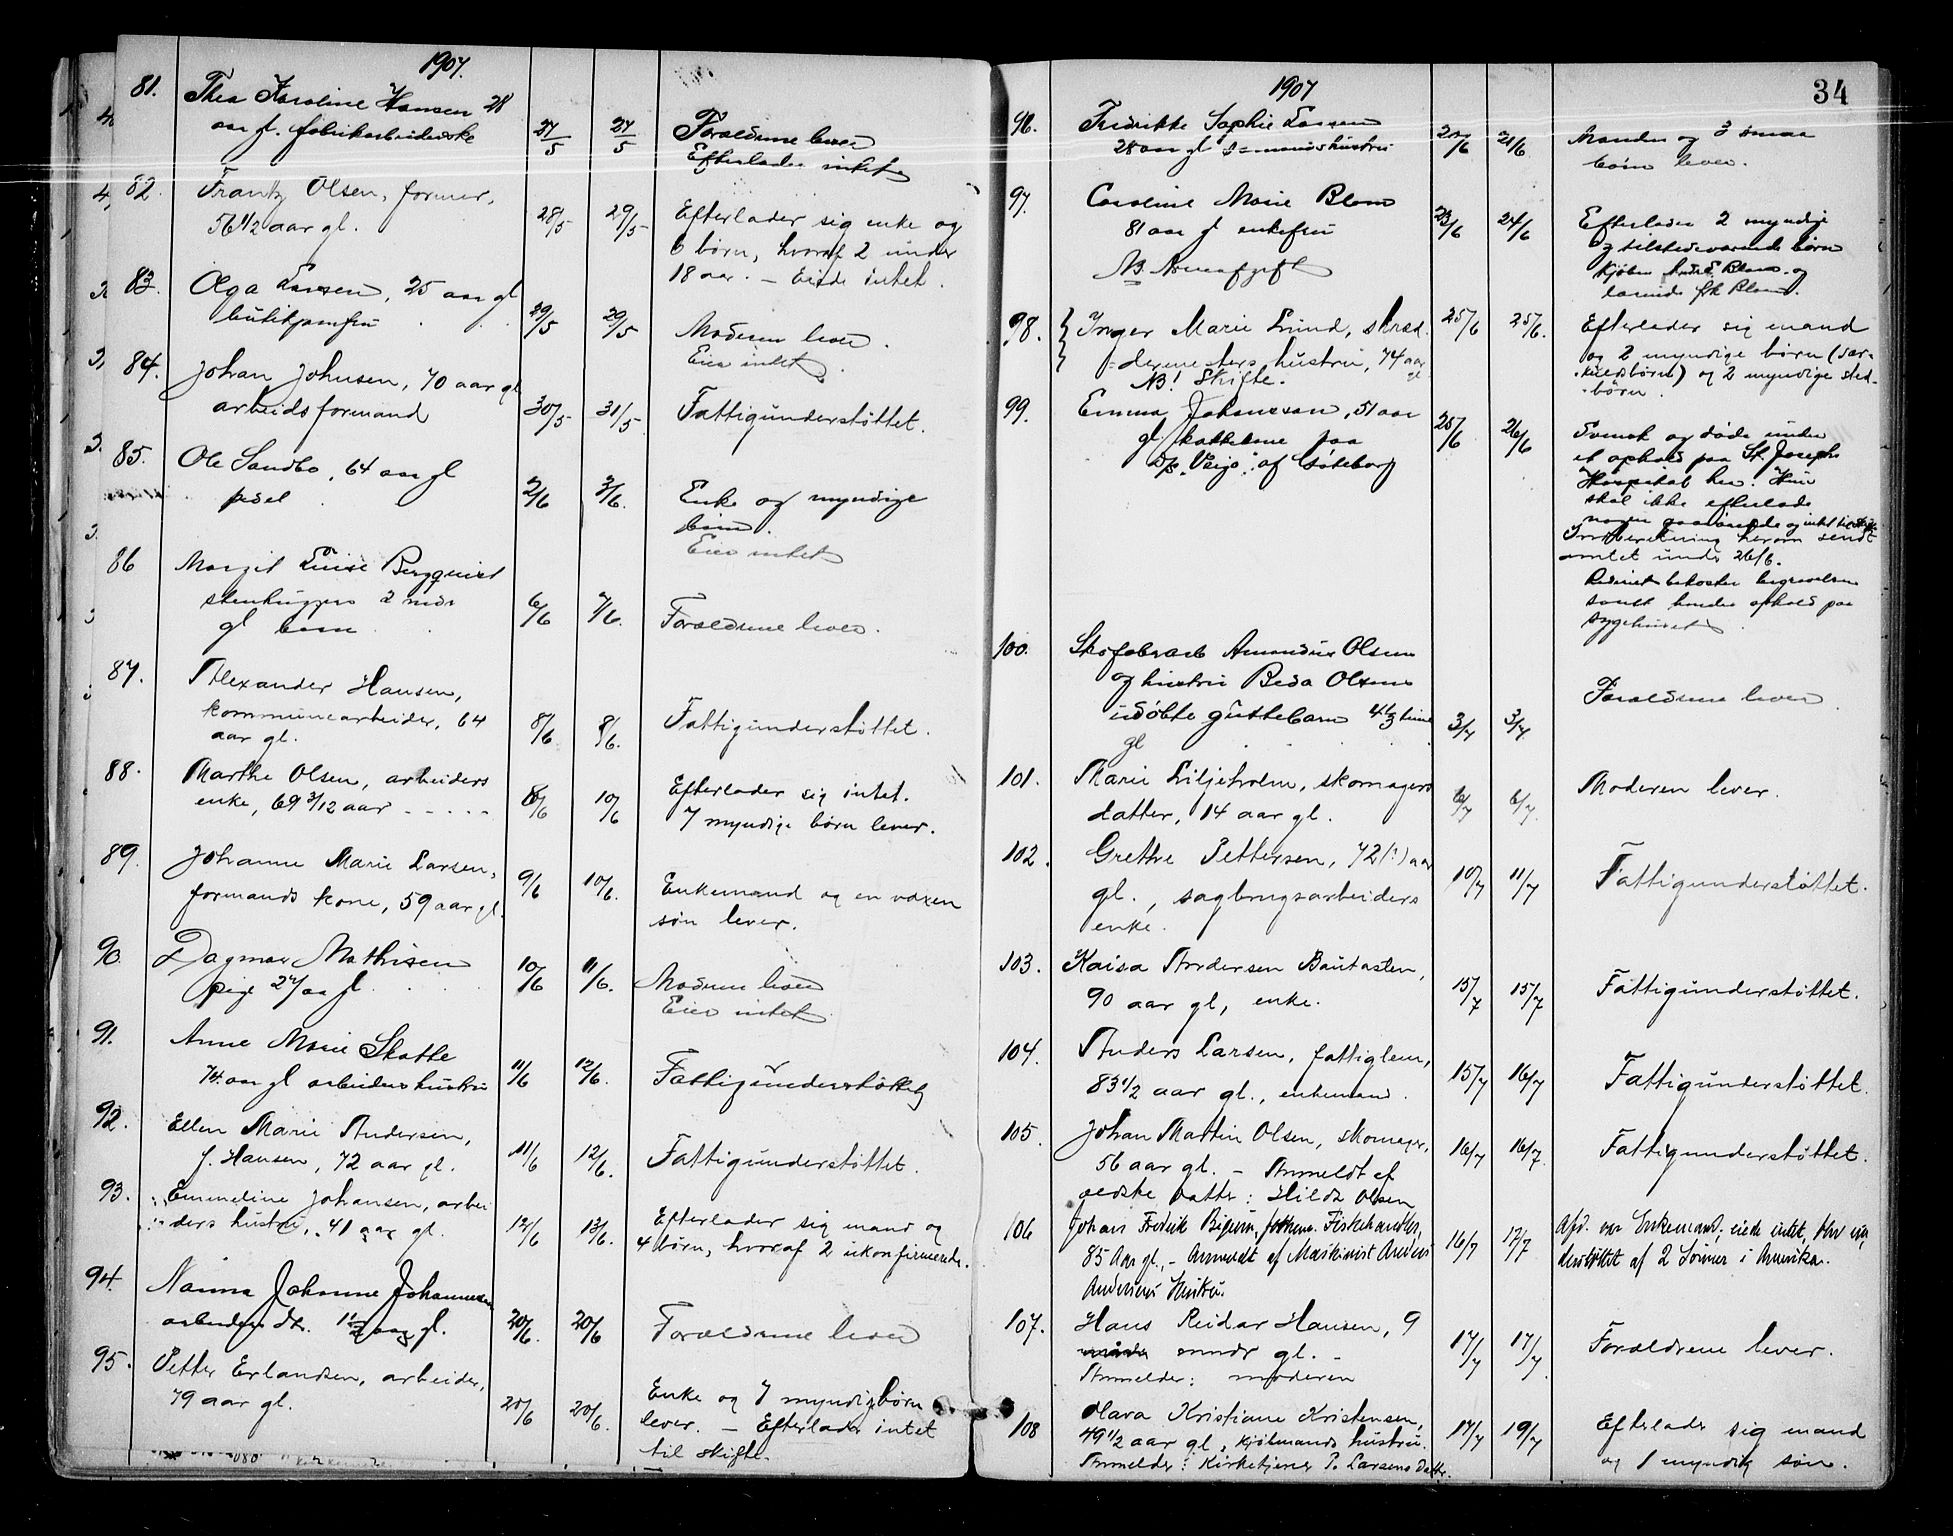 1907.
81. Thea Karoline Hansen 28
aar gl. fabrikarbeiderske 27/5 27/5 Forældrene lever
Efterlader intet
82. Frantz Olsen, former,
56 1/2 aar gl. 28/5 29/5 Efterlader sig enke og
6 børn, hvoraf 2 under
18 aar. – Eiede intet.
83. Olga Larsen, 25 aar gl
butikjomfru 29/5 29/5 Moderen lever.
Eier intet.
84. Johan Johnsen, 70 aar gl
arbeidsformand 30/5 31/5 Fattigunderstøttet.
85. Ole Sandbo, 64 aar gl
pedel 2/6 3/6. Enke og myndige
børn.
Eier intet
86 Margit Luise Bergquist
stenhuggers 2 mdr
gl barn 6/6 7/6. Forældrene lever.
87. Alexander Hansen,
kommunearbeider, 64
aar gl. 8/6 8/6. Fattigunderstøttet.
88. Marthe Olsen, arbeiders
enke, 69 3/12 aar 8/6 10/6 Efterlader sig intet.
7 myndige børn lever.
89. Johanne Marie Larsen,
formands kone, 59 aar gl. 9/6 10/6. Enkemand og en voxen
søn lever.
90. Dagmar Mathisen
pige 27 aar gl. 10/6 11/6. Moderen lever
Eier intet
91. Anne Marie Skatte
74 aar gl arbeiders hustru 11/6 12/6. Fattigunderstøttet
92. Ellen Marie Andersen,
f. Hansen, 72 aar gl. 11/6 12/6. Fattigunderstøttet.
93. Emmeline Johansen, arbei
ders hustru, 41 aar gl. 12/6 13/6. Efterlader sig mand og
4 børn, hvoraf 2 ukonfirmerede.
94. Nanna Johanne Johannesen
arbeiders dtr. 1 1/2 aar gl. 20/6. 20/6 Forældrene lever
95. Petter Erlandsen, arbeider,
79 aar gl. 20/6 20/6. Enke og 7 myndig børn
lever. – Efterlader intet
til skifte.
34
1907
96. Fredrikke Sophie Larsen
28 aar gl sømandshustru 21/6 21/6. Manden og 3 smaa
børn lever.
97. Caroline Marie Blom
81 aar gl enkefru 23/6 24/6 Efterlader 2 myndige
og tilstedeværende børn
NB. Arveafgift
Kjøbm Blom og
frk Blom.
98. Inger Marie Lund, skræd-
dermesters hustru, 74 aar gl 25/6 25/6. Efterlader sig mand
NB! Skifte.
og 2 myndige børn (sær-
kuldsbørn) og 2 myndige sted-
børn.
99. Emma Johansson, 51 aar
gl paa
D/s "Vaigo" af Gøteborg 25/6 26/6 Svensk og døde under
et ophold paa St. Josephs
Hospital her. Hun
skal ikke efterlade
nogen paarørende og intet til skifte.
Indberetning herom sendt
amtet under 26/6.
Rederiet bekoster begravelsen
samt hendes ophold paa
sygehuset.
100. Skofabrarb Amandus Olsen
og hustru Beda Olsens
udøbte guttebarn 4 1/2 time
gl 3/7 3/7. Forældrene lever
101. Marie Liljeholm, skomagers
datter, 14 aar gl. 6/7 6/7. Moderen lever.
102. Grethe Pettersen, 72 (!) aar
gl., sagbrugsarbeiders
enke. 10/7 11/7 Fattigunderstøttet.
103. Kaisa Andersen Bautasten,
90 aar gl, enke. 15/7 15/7 Fattigunderstøttet.
104. Anders Larsen, fattiglem,
83 1/2 aar gl., enkemand. 15/7 16/7 Fattigunderstøttet.
105. Johan Martin Olsen, skomager,
56 aar gl. – Anmeldt af
ældste datter: Hilda Olsen 16/7 16/7. Fattigunderstøttet.
106 Johan Fredrik forhenv. Fiskehandler,
85 Aar gl. – Anmeldt af Maskinist Anders
Andersens Hustru. 16/7 17/7 Afd. var Enkemand, eiede intet, blev un-
derstøttet af 2 Sønner i Amerika.
107. Hans Reidar Hansen, 9
mndr gl. –
Anmelder: moderen 17/7 17/7 Forældrene lever.
108 Olava Kristiane Kristensen,
49 1/2 aar gl, kjølmands hustru.
Anmelder: Kirketjener P. Larsens Datter. 17/7 19/7 Efterlader sig mand
og 1 myndig søn.